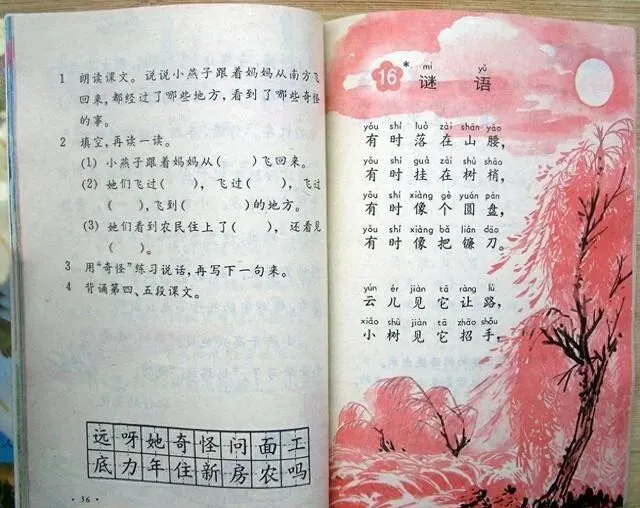 1 朗读课文。说说小燕子跟着妈妈从南方飞
回来,都经过了哪些地方,看到了哪些奇怪
的事。
2 填空,再读一读。
(1) 小燕子跟着妈妈从(  )飞回来。
(2) 她们飞过(  ),飞过(  ),飞过
(  ),飞到(  )的地方。
(3) 她们看到农民住上了(  ),还看见
(  )。
3 用“奇怪”练习说话,再写下一句来。
4 背诵第四、五段课文。
远呀她奇怪问面工
底力年住新房农吗
· 36 ·
mí yǔ
16* 谜语
yǒu shí luò zài shān yāo
有时落在山腰,
yǒu shí guà zài shù shāo
有时挂在树梢,
yǒu shí xiàng gè yuán pán
有时像个圆盘,
yǒu shí xiàng bǎ lián dāo
有时像把镰刀。
yún ér jiàn tā ràng lù
云儿见它让路,
xiǎo shù jiàn tā zhāo shǒu
小树见它招手,